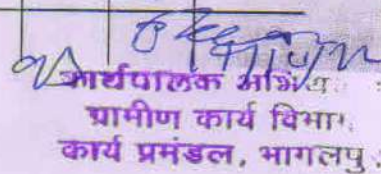 कार्यपालक अभिय
ग्रामीण कार्य विभाग
कार्य प्रमंडल, भागलपु